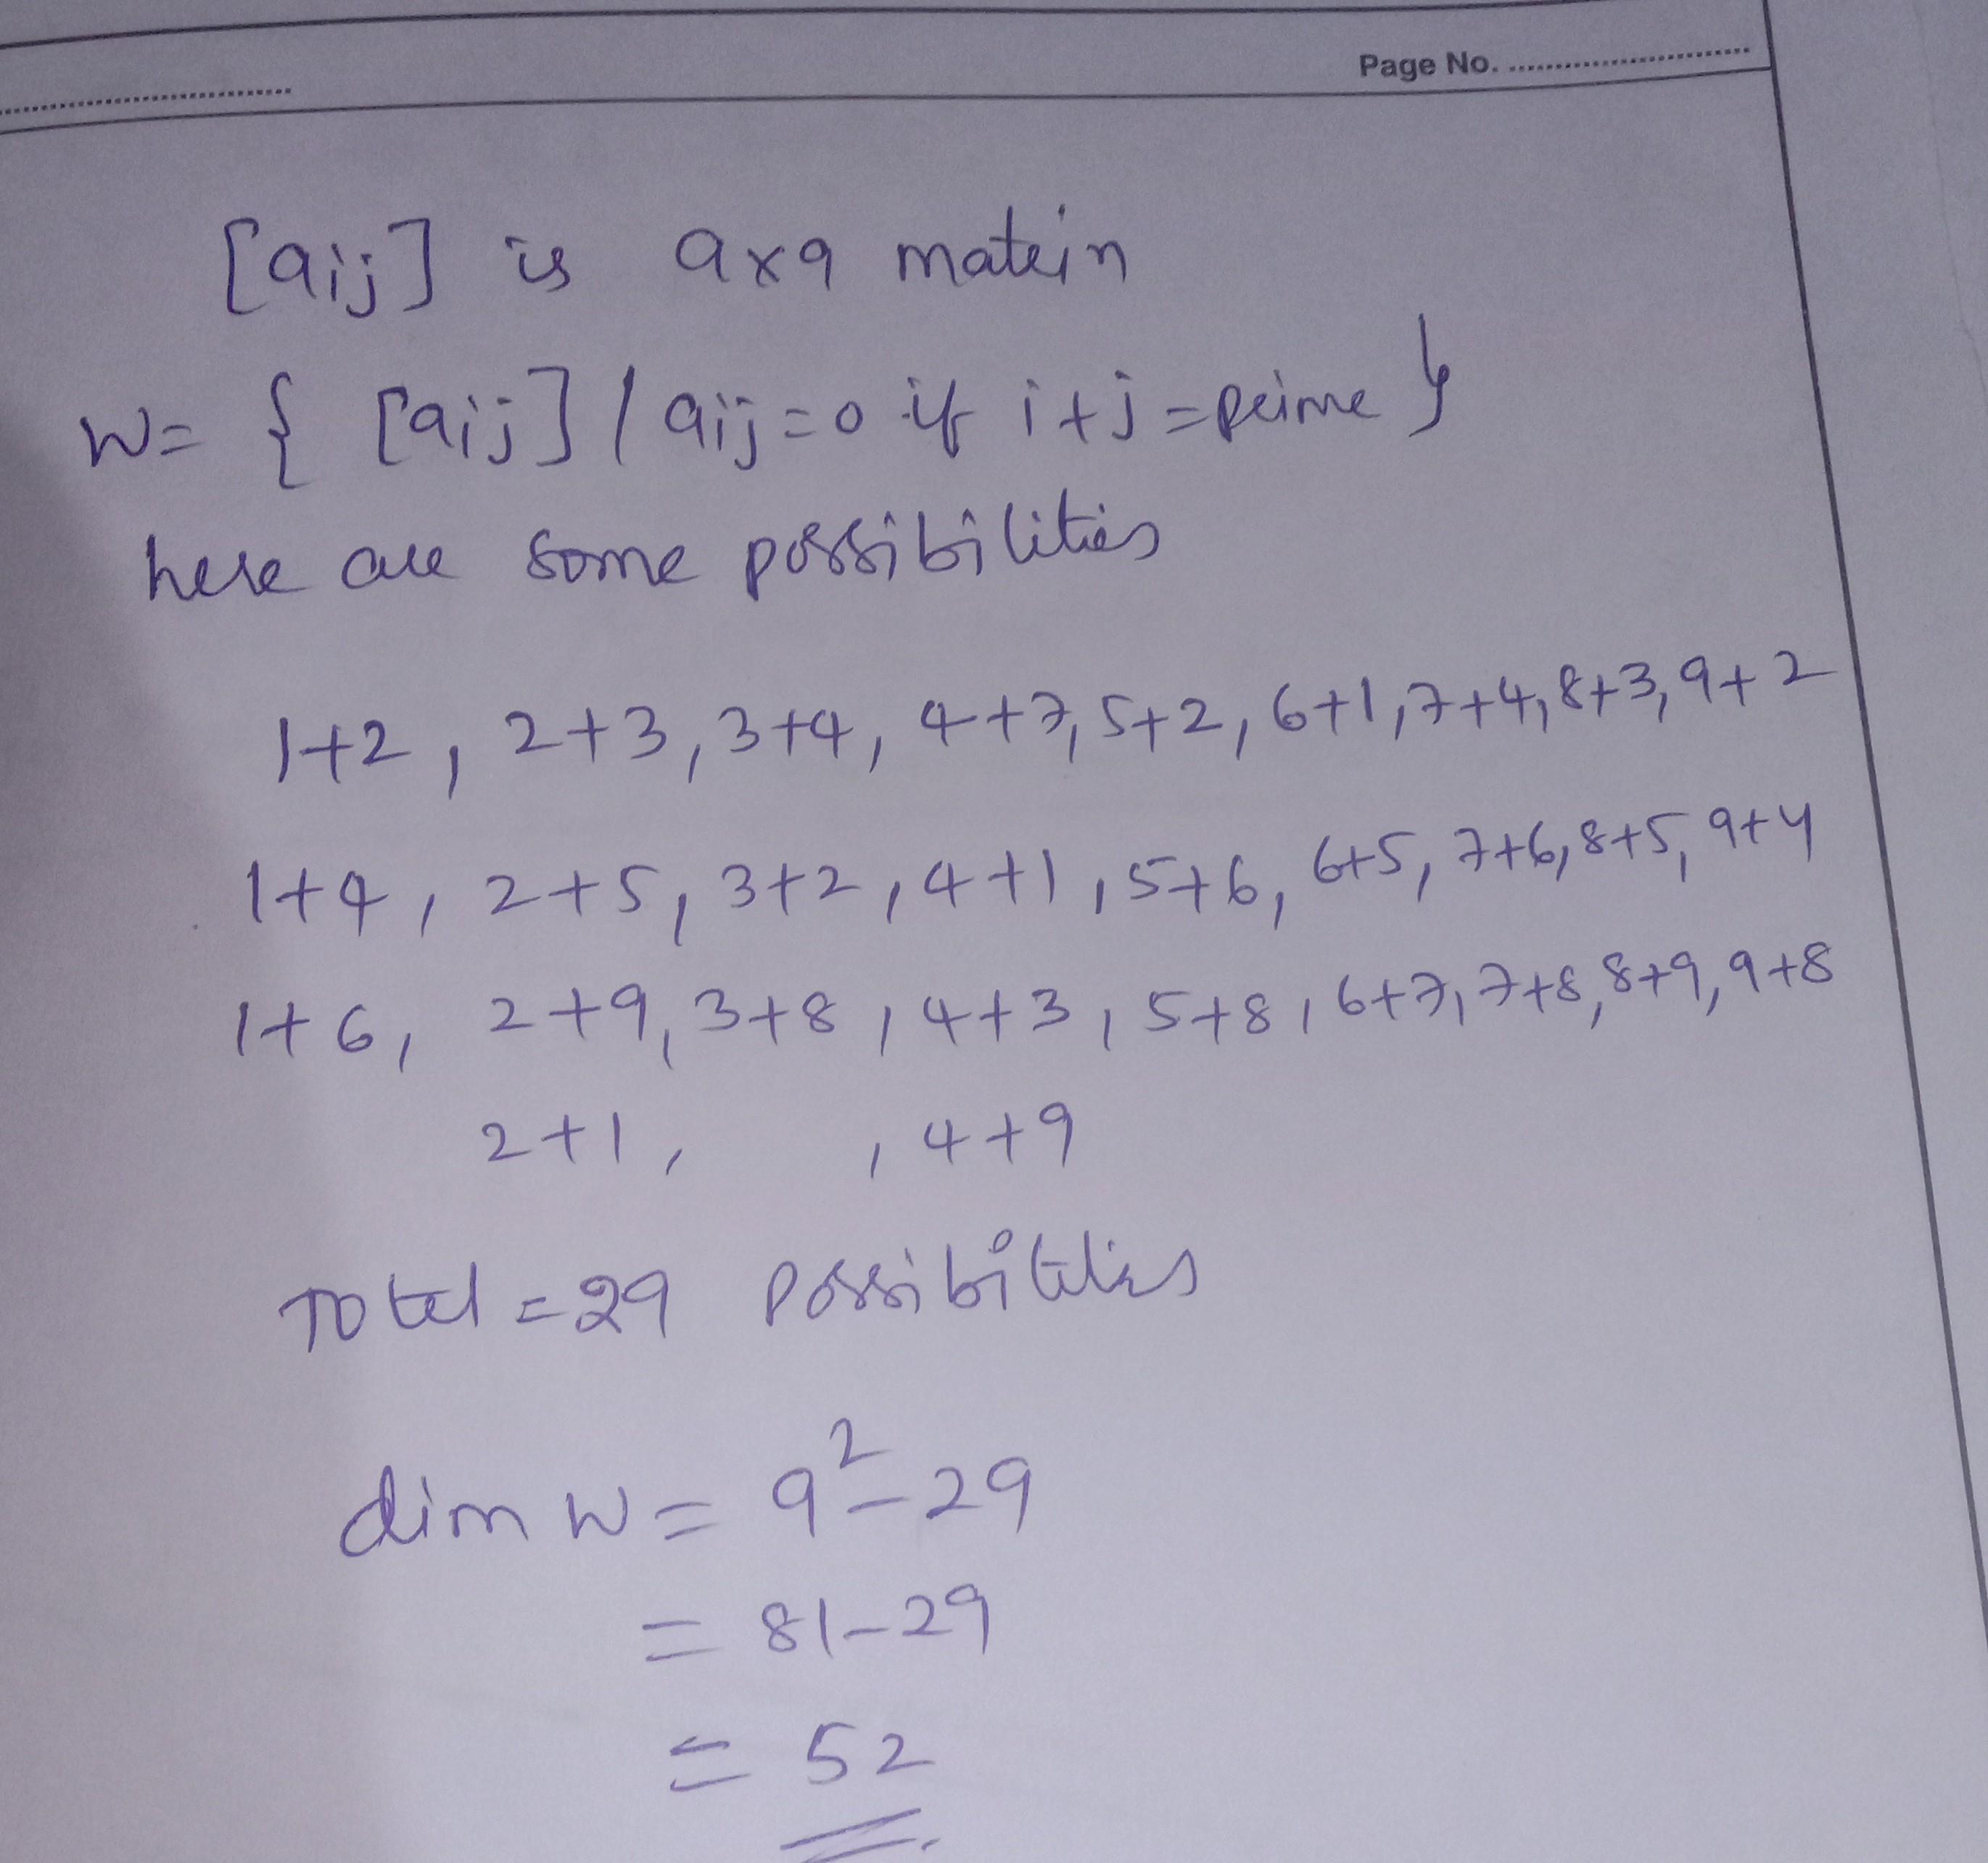 Page No. ........................
[aij] is 9x9 matrix
W = { [aij] / aij = 0 if i+j = prime }
here are some possibilities
1+2, 2+3, 3+4, 4+7, 5+2, 6+1, 7+4, 8+3, 9+2
1+4, 2+5, 3+2, 4+1, 5+6, 6+5, 7+6, 8+5, 9+4
1+6, 2+9, 3+8, 4+3, 5+8, 6+7, 7+8, 8+9, 9+8
2+1, , 4+9
Total = 29 possibilities
dim W = 9² - 29
= 81-29
= 52